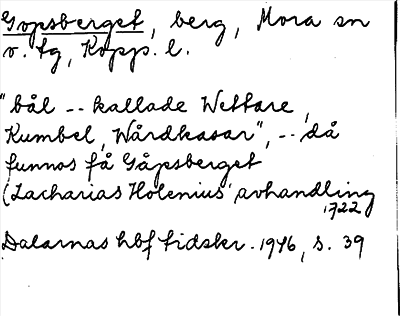 Gopsberget, berg, Mora sn
v. tg, Kopp. l.
"bål -- kallade Wettare,
Kumbel, Wårdkasar", -- då
funnos få Gåpsberget
(Zacharias Holenius' avhandling
1722
Dalarnas hbf tidskr. 1946, s. 39